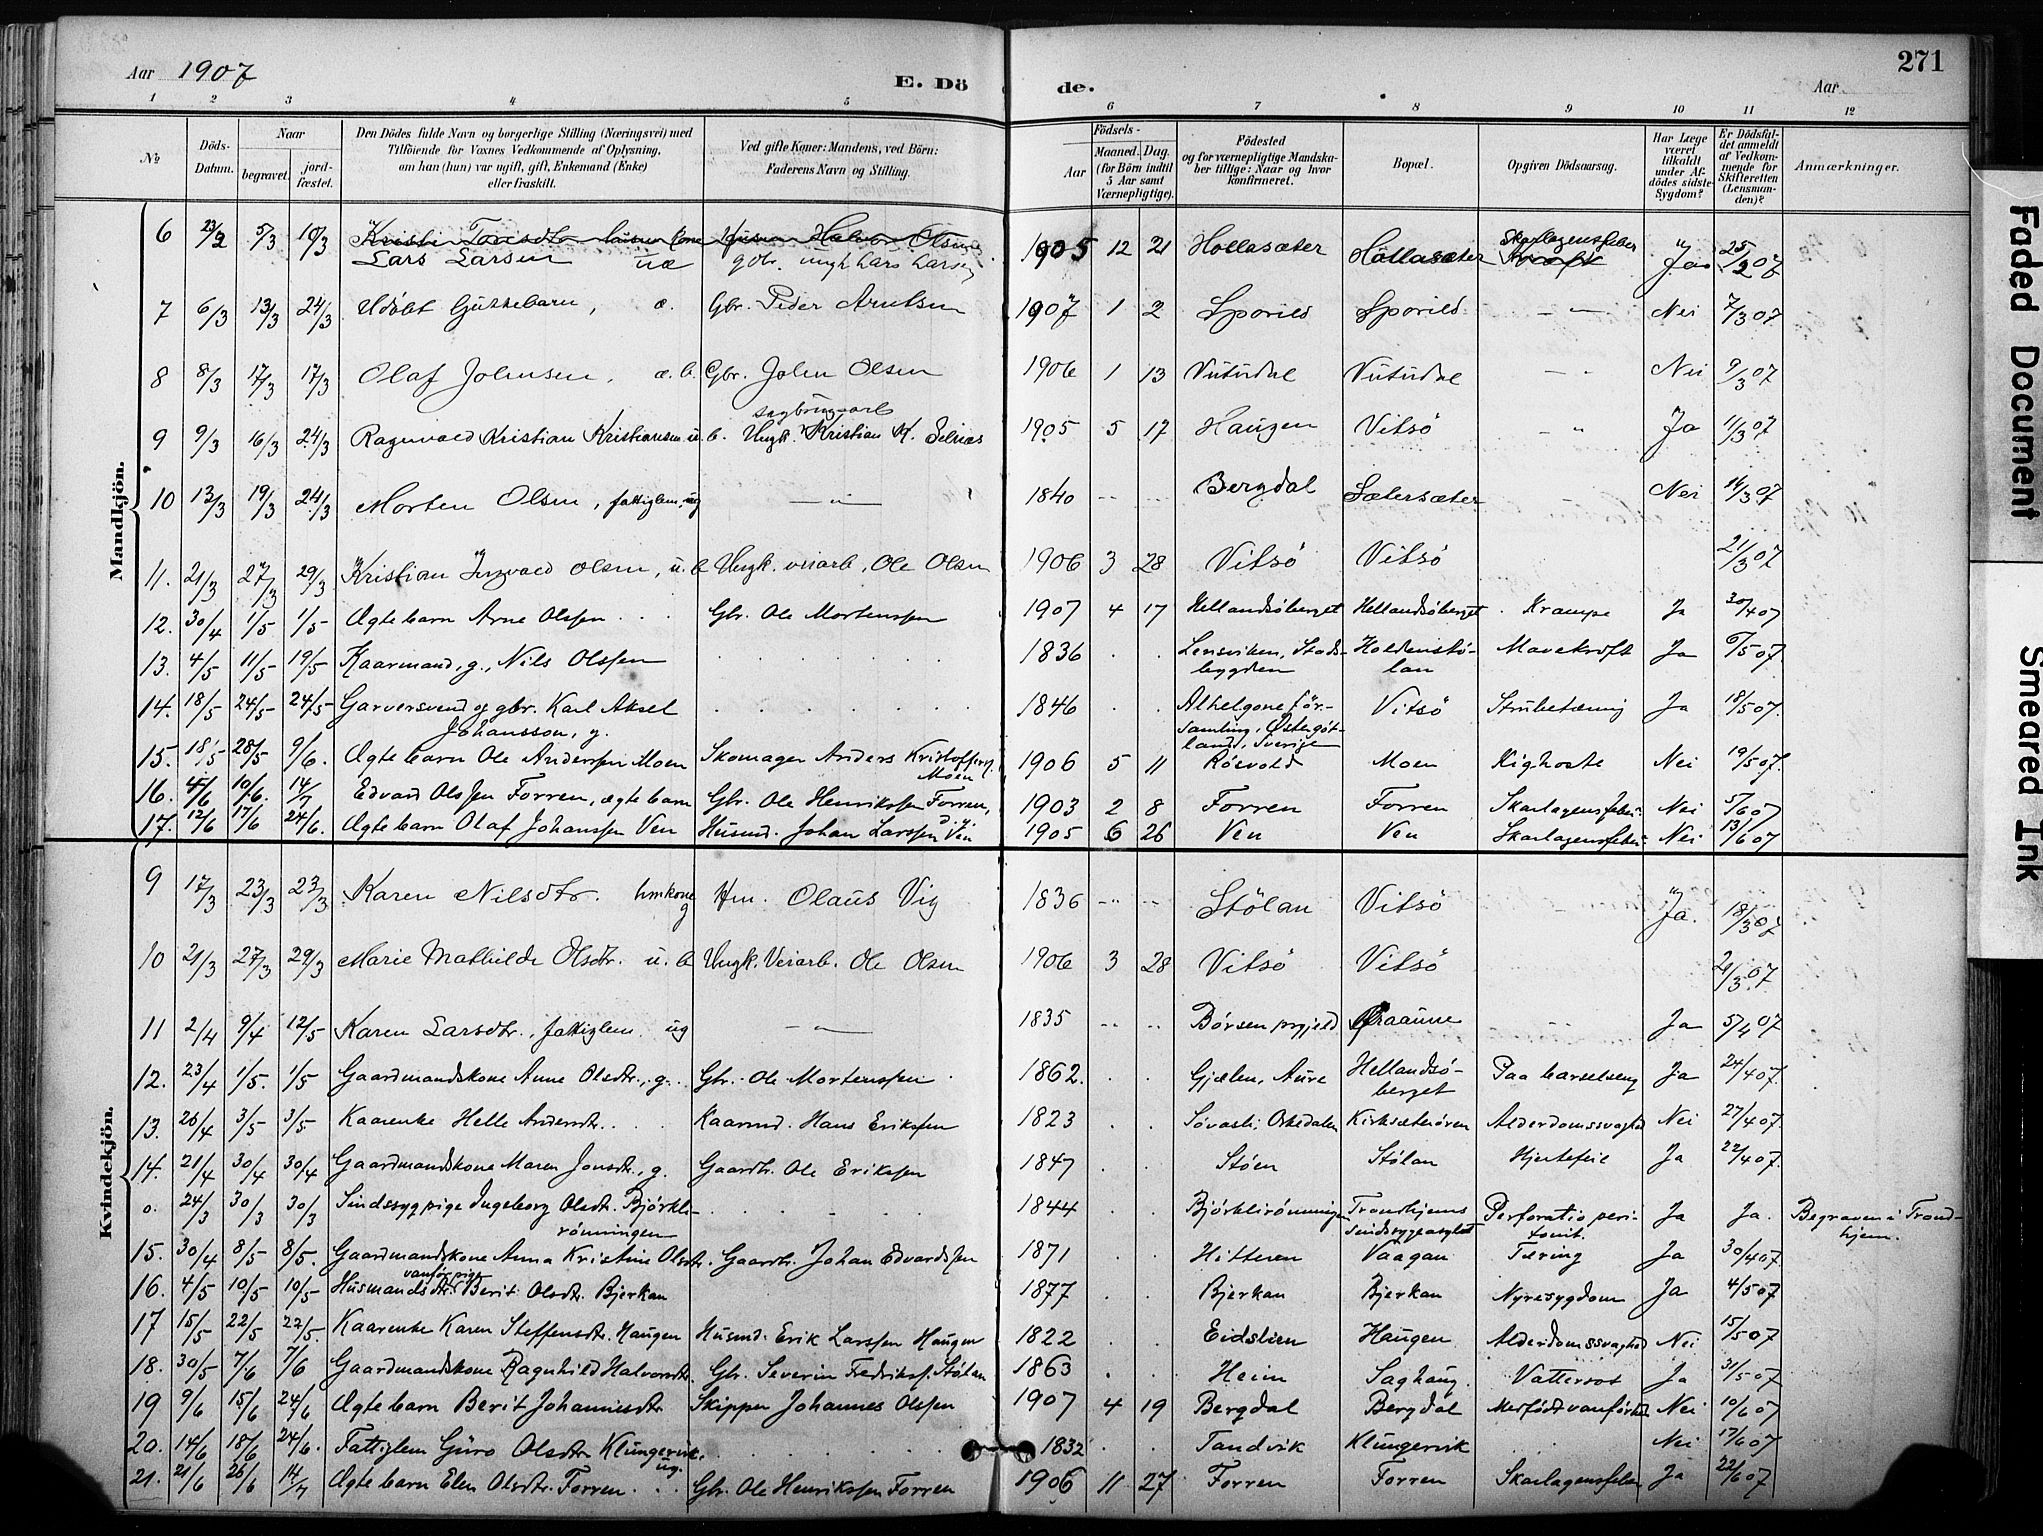 Aar 1907
E. Dö de.
Aar
271
1 2 3 4 5 6 7 8 9 10 11 12
№
Döds-Datum.
Naar
begravet.
jordfæstet.
Den Dödes fulde Navn og borgerlige Stilling (Næringsvei) med
Tilföiende for Voxnes Vedkommende af Oplysning,
om han (hun) var ugift, gift, Enkemand (Enke)
eller fraskilt.
Ved gifte Koner: Mandens, ved Börn:
Faderens Navn og Stilling.
Födsels-
Aar
Maaned. Dag.
(for Börn indtil
5 Aar samt
Værnepligtige).
Födested
og for værnepligtige Mandska-
ber tillige: Naar og hvor
konfirmeret.
Bopæl.
Opgiven Dödsaarsag.
Har Læge
været
tilkaldt
under Af-
dödes sidste
Sygdom?
Er Dödsfal-
det anmeldt
af Vedkom-
mende for
Skifteretten
(Lensman-
den)?
Anmærkninger.
Mandkjön.
6 23/2 5/3 10/3 Lars Larsen uæ gbr. ungk Lars Larsen 1905 12 21 Hollasæter Hollasæter Skarlagensfeber Ja 25/2 07
7 6/3 13/3 24/3 Udöbt Guttebarn, æ. Gbr. Peder Arntsen 1907 1 2 Sporild Sporild — " — Nei 7/3 07
8 8/3 17/3 17/3 Olaf Johnsen, æ. b. Gbr. John Olsen 1906 1 13 Vutudal Vutudal — " Nei 9/3 07
9 9/3 16/3 24/3 Ragnvald Kristian Kristiansen u. b. Ungk. sagbrugsarb Kristian K. Selnæs 1905 5 17 Haugen Vitsö - " Ja 11/3 07
10 13/3 19/3 24/3 Morten Olsen, fattiglem, ug — " — 1840 Bergdal Sætersæter Nei 14/3 07
11. 21/3 27/3 29/3 Kristian Ingvald Olsen, u. b Ungk. veiarb, Ole Olsen 1906 3 28 Vitsö Vitsö 21/3 07
12. 30/4 1/5 1/5 Ægtebarn Arne Olssen Gbr. Ole Mortenssen 1907 4 17 Hellandsöberget Hellandsöberget Krampe Ja 30/4 07
13. 4/5 11/5 19/5 Kaarmand, g., Nils Olssen 1836 Lensviken, Stads-bygden Holdenstö-lan Mavekræft Ja 6/5 07.
14. 18/5 24/5 24/5 Garversvend og gbr. Karl Aksel Johansson, g. 1846 Alhelgone för-samling, Østergöt-land, Sverige Vitsö Strubetæring Ja 18/5 07.
15. 18/5 28/5 9/6. Ægtebarn Ole Anderssen Moen Skomager Anders Kristoffers. Moen 1906 5 11 Rösvold Moen Kighoste Nei 19/5 07.
16. 4/6 10/6. 14/7 Edvard Olssen Forren, ægtebarn Gbr. Ole Henrikssen Forren, 1903 2 8 Forren Forren Skarlagensfeber Nei 5/6 07
17. 12/6 17/6 24/6. Ægtebarn Olaf Johanssen Ven Husmd. Johan Larssen Ven 1905 6 26 Ven Ven Skarlagensfeber Nei 13/6 07
Kvindekjön.
9 17/3 23/3 23/3 Karen Nilsdtr. hmkone g Hm. Olaus Vig 1836 Stölan Vitsö Ja. 18/3 07
10 21/3 27/3 29/3 Marie Mathilde Olsdtr. u. b Ungk. Veiarb. Ole Olsen 1906 3 28 Vitsö Vitsö 21/3 07
11 2/4 9/4 12/5 Karen Larsdtr., fattiglem ug — " — 1835 Börsen prgjeld Ja 5/4 07
12. 23/4 1/5. 1/5 Gaardmandskone Anne Olsdtr., g. Gbr. Ole Mortenssen 1862. Gjælen, Aure Hellandsö-berget Paa barselseng Ja 24/4 07.
13. 26/4 3/5 3/5 Kaarenke Helle Andersdtr. Kaarmd. Hans Erikssen 1823 Søvasli, Orkedalen Kirksæterören Alderdomssvaghed Nei 27/4 07.
14. 21/4 30/4 30/4 Gaardmandskone Maren Jonsdtr., g. Gaardbr. Ole Erikssen 1847 Stöen Stölan Hjertefeil Ja 22/4 07.
0. 24/3 30/3 30/3 Sindssygpige Ingeborg Olsdtr. Björkli-rönningen 1844 Björklirönningen Trondhjems Sindssygeasyl Perforatio peri-tonit. Ja Ja. Begraven i Trond-hjem.
15. 30/4 8/5 8/5. Gaardmandskone Anna Kristine Olsdtr. Gaardbr. Johan Edvardssen 1871 Hitteren Vaagan Tæring Ja 30/4 07.
16. 4/5 10/5 10/5 Husmandsdtr. vanför pige Berit Olsdtr. Bjerkan 1877 Bjerkan Bjerkan Nyresygdom Ja 4/5 07
17 15/5 22/5 22/5. Kaarenke Karen Steffensdtr. Haugen Husmd. Erik Larssen Haugen 1822 Eidslien Haugen Alderdomssvaghed Nei 15/5 07
18. 30/5 7/6 7/6 Gaardmandskone Ragnhild Halvorsdtr. Gbr. Severin Fredrikss. Stölan 1863 Heim Saghaug Vattersot Ja 31/5 07
19 9/6 15/6 24/6 Ægtebarn Berit Johannesdtr Skipper Johannes Olssen 1907 4 19 Bergdal Bergdal Medfödt vanförhed Nei 10/6 07
20. 14/6 18/6 24/6. Fattiglem Guro Olsdtr. Klungervik. ug. 1832 Tandvik Klungervik Nei 17/6 07
21. 21/6 26/6 14/7 Ægtebarn Elen Olsdtr. Forren Gbr. Ole Henrikssen Forren 1906 11 27 Forren Forren Skarlagensfeber Ja 22/6 07
Faded Document
Smeared Ink